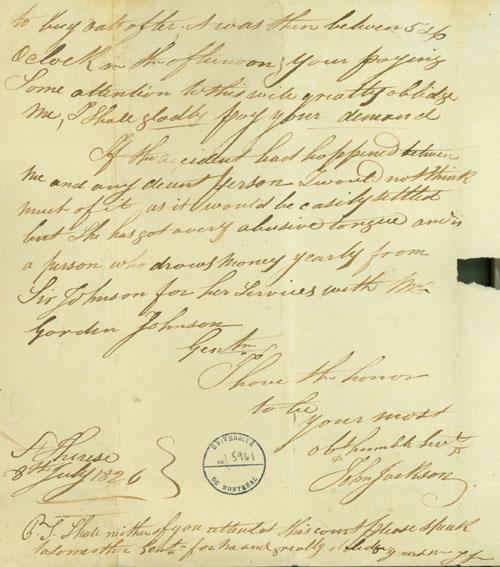 to buy oats after it was then between 5 & 6
Oclock in the afternoon; your paying
Some attention to this will greatly oblidge
me, I Shall gladly pay your demand
If the accident had happened between
me and any decent person I would not think
much of it as it would be easily settled
but She has got a very abusive tongue and is
a person who draws money yearly from
Sir Johnson for her Services with Mr
Gordon Johnson
Gentn
I have the honor
to be
your most
obt humble Servt
John Jackson
St Therese
8th July 1826
UNIVERSITÉ
5961
DE MONTRÉAL
P.S. Shall neither of you attend at this court please speak
to some other Gentn for me and greatly oblidge yours